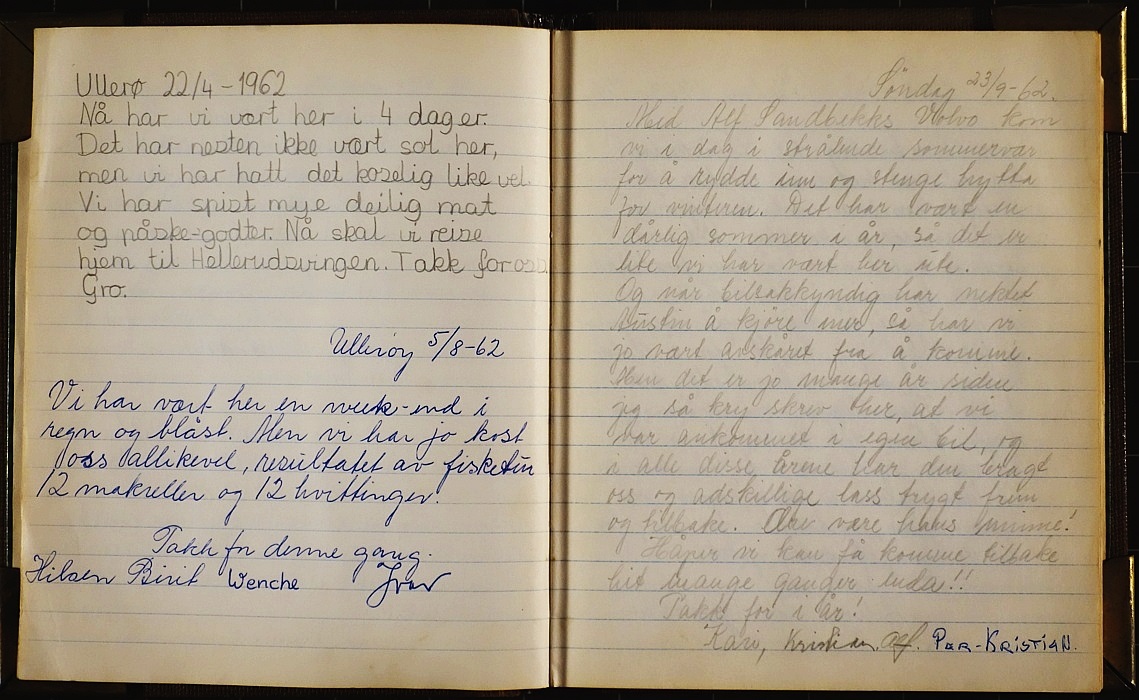 Ullerø 22/4-1962
Nå har vi vært her i 4 dager.
Det har nesten ikke vært sol her,
men vi har hatt det koselig like vel.
Vi har spist mye deilig mat
og påske-godter. Nå skal vi reise
hjem til Hellerudsvingen. Takk for oss.
Gro.
Ullerøy 5/8-62
Vi har vært her en week-end i
regn og blåst. Men vi har jo kost
oss allikevel, resultatet av fisketur
12 makreller og 12 hvittinger.
Takk for denne gang.
Hilsen Birit Wenche Ivar
Søndag 23/9-62.
Med Alf Sandbekks Volvo kom
vi i dag i strålende sommervær
for å rydde inn og stenge hytta
for vinteren. Det har vært en
dårlig sommer i år, så det er
lite vi har vært her ute.
Og når bilsakkyndig har nektet
Austin å kjøre mer, så har vi
jo vært avskåret fra å komme.
Men det er jo mange år siden
jeg så kry skrev her, at vi
var ankommet i egen bil, og
i alle disse årene har den bragt
oss og adskillige lass trygt frem
og tilbake. Ære være hans minne!
Håper vi kan få komme tilbake
hit mange ganger enda!!
Takk for i år!
Kari, Kristian. Alf. Per-Kristian.